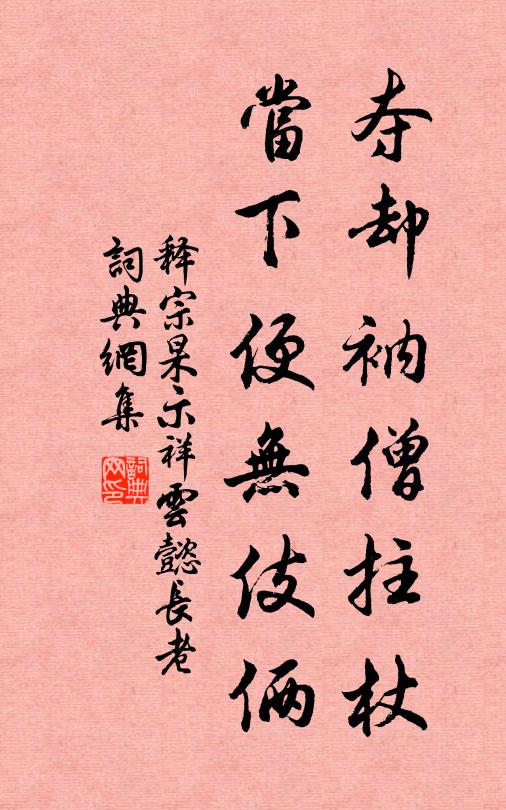 夺却衲僧拄杖
當下便無伎俩
释宗杲示祥雲懿長老
詞典網集
詞典网印